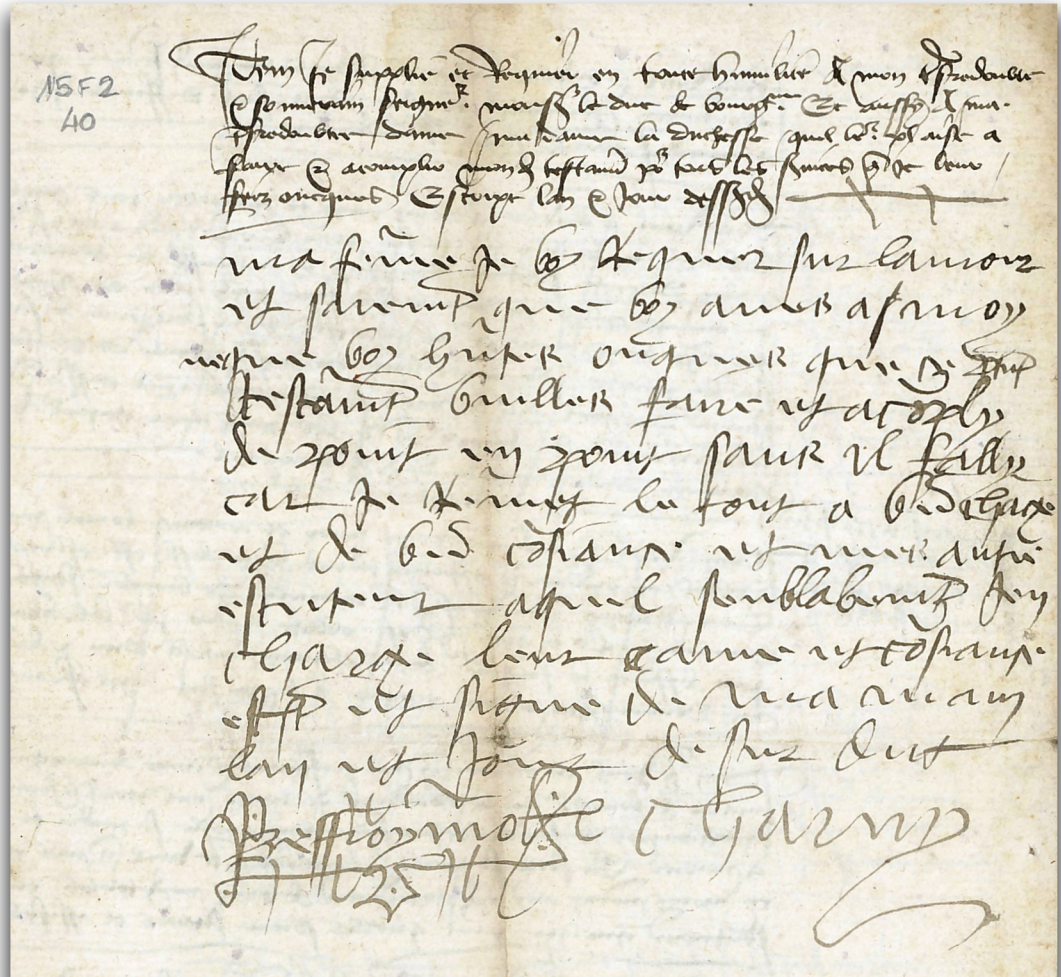 15 F 2
40
Item Je supplie et Requier en toute humilite A mon tresredoubte
& souuerain seigneur monsgr le duc de bourgne Et aussy A ma
tresredoubtee dame madame la duchesse quil leur plaise a
faire & acomplir mond testamt pour tous les seruices que Je leur
feiz oncques Escript lan & Jour dessusd
ma feme Je vo9 Requier sur lamour
et saremt que vo9 aues a moy
que vo9 huses oncques que ce pnt
testamt vuilles faire et acoplir
de point en point sans il fallir
car Je Remet le tout a vre charge
et de vre cosiance et mes autre
esecuteur aquel senblablemt Jen
charge leur ame et cosiance
escript et signe de ma main
lan et Jour desur dut
Beffroymont Charny